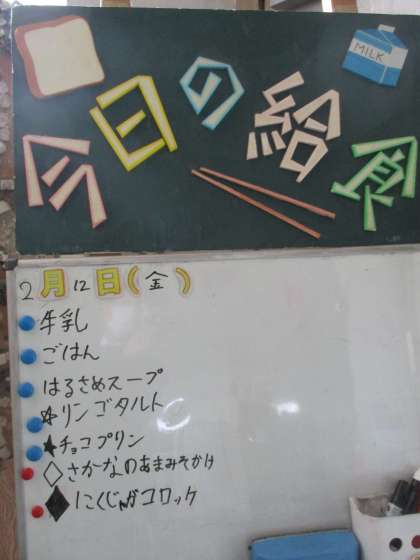 今日の給食
MILK
2月12日(金)
牛乳
ごはん
はるさめスープ
☆リンゴタルト
★チョコプリン
◇さかなのあまみそかけ
◆にくじゃがコロッケ